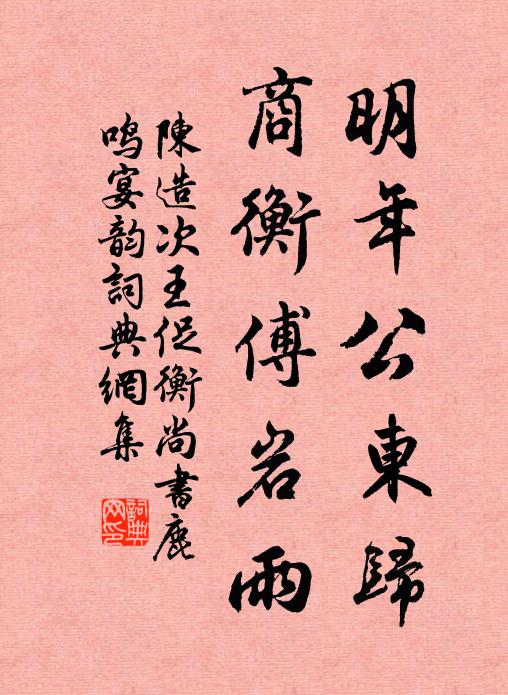 明年公東歸
商衡傅岩雨
陳造次王促衡尚書鹿
鸣宴韵詞典網集
詞典
网印